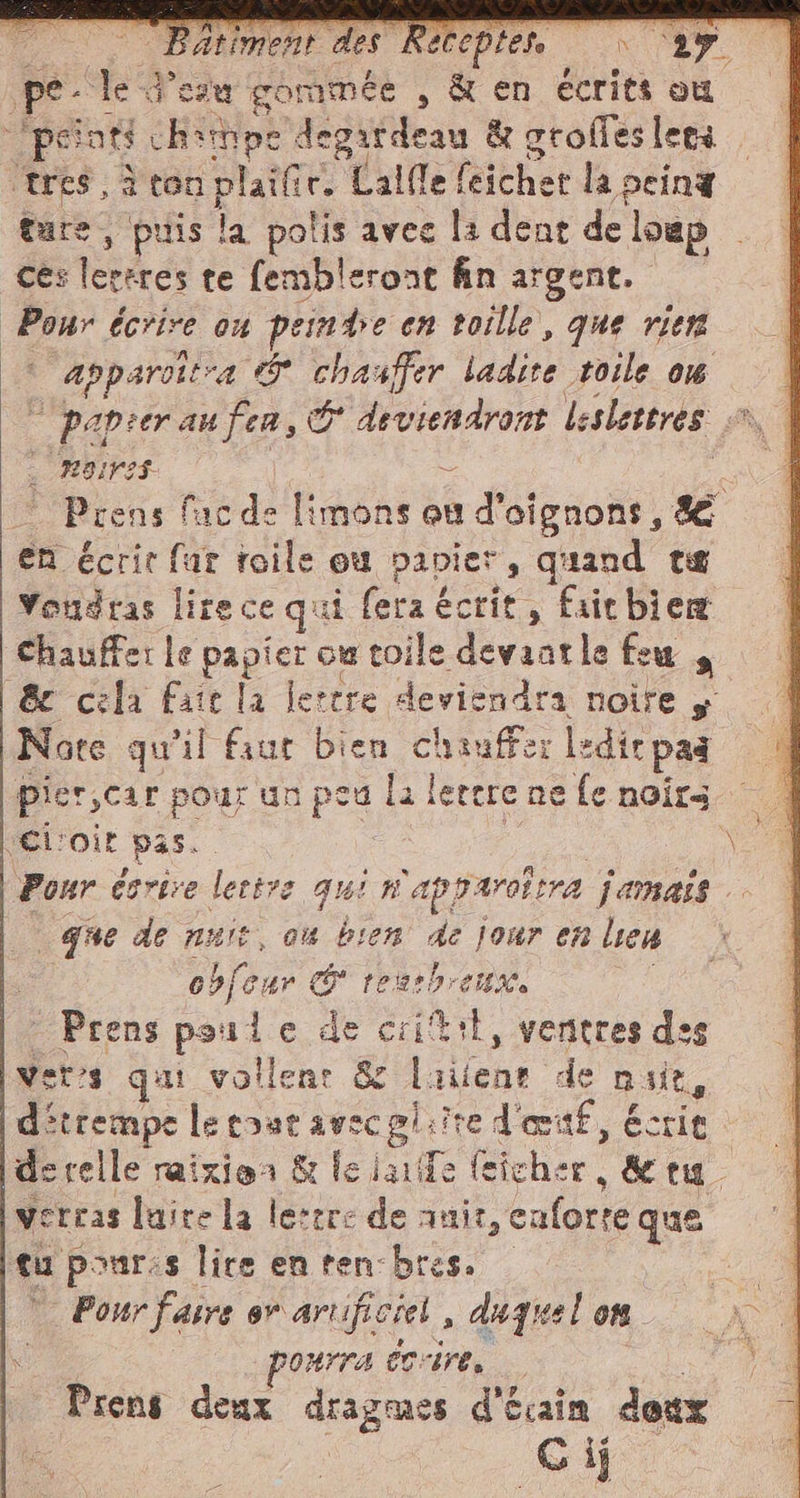 Bâtiment des Receptes. 27
pe-le d'eau gommée , & en écrits ou
peints champe degardeau & grosses leta
tres , à ton plaisir. Laisse seicher la peina
ture, puis la polis avec la dent de loup
ces lettres te sembleront fin argent.
Pour écrire ou peindre en toille, que rien
apparoîtra & chauffer ladite toile ou
papier au feu, & deviendront les lettres
noires
Prens suc de limons ou d'oignons, &
en écrit sur toile ou papier, quand tu
voudras lire ce qui sera écrit, fait bien
chauffer le papier ou toile devant le feu ,
& cela fait la lettre deviendra noire ,
Note qu'il faut bien chauffer ledit pa-
pier, car pour un peu la lettre ne se noir-
ciroit pas.
Pour écrire lettre qui n'apparoîtra jamais
que de nuit, ou bien de jour en lieu
obscur & tenebreux.
Prens poud e de cristil, ventres des
vers qui vollent & luisent de nuit,
détrempe le tout avec glaire d'œuf, écrit
de telle mixion & le laisse seicher, & tu
verras luire la lettre de nuit, ensorte que
tu pouras lire en tenebres.
Pour faire or artificiel , duquel on
pourra écrire.
Prens deux dragmes d'étain doux
C ij